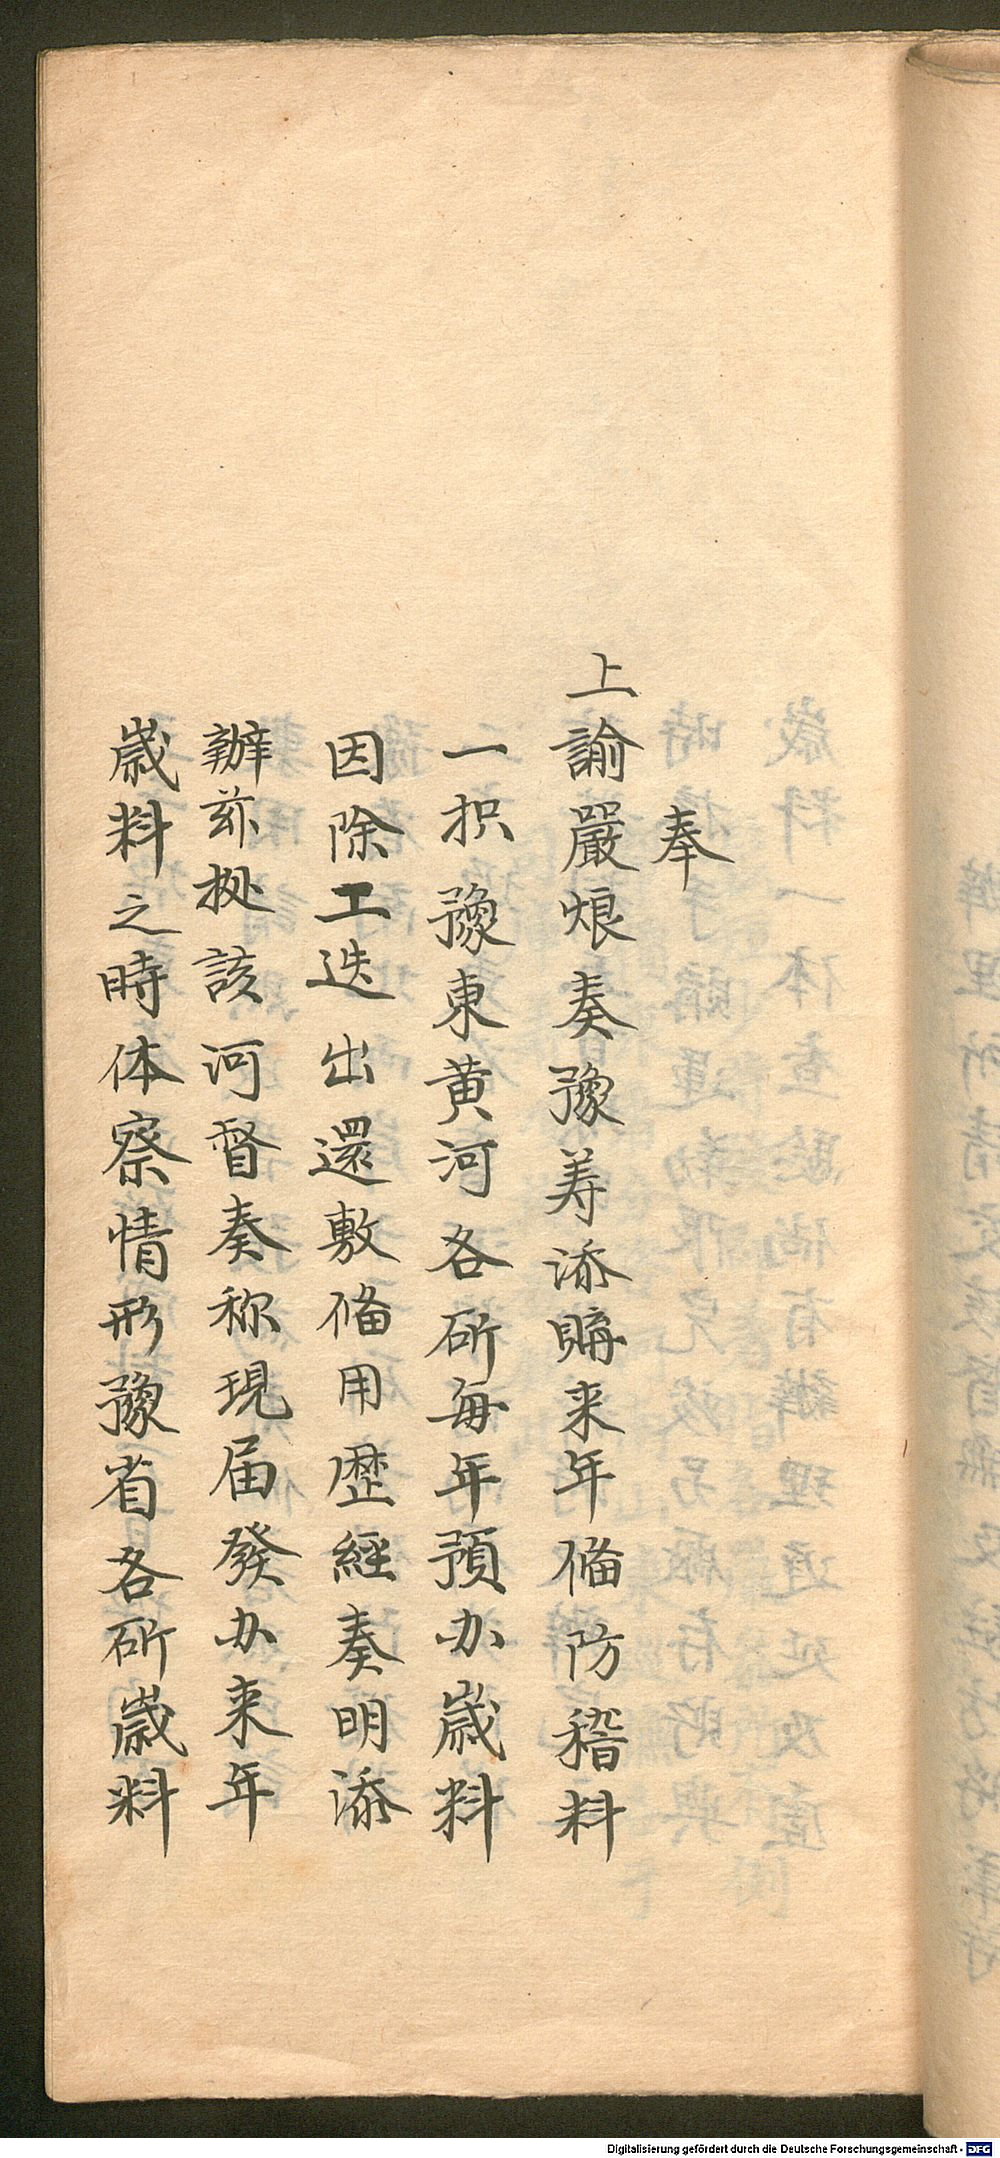 奉
上諭嚴烺奏豫筹添購来年俻防稭料
一摺豫東黄河各𠩄每年預办歲料
因除工迭出還敷俻用歴經奏明添
辦茲㨿該河督奏称現届發办来年
歲料之時体察情形豫省各𠩄歲料
Digitalisierung gefördert durch die Deutsche Forschungsgemeinschaft - DFG